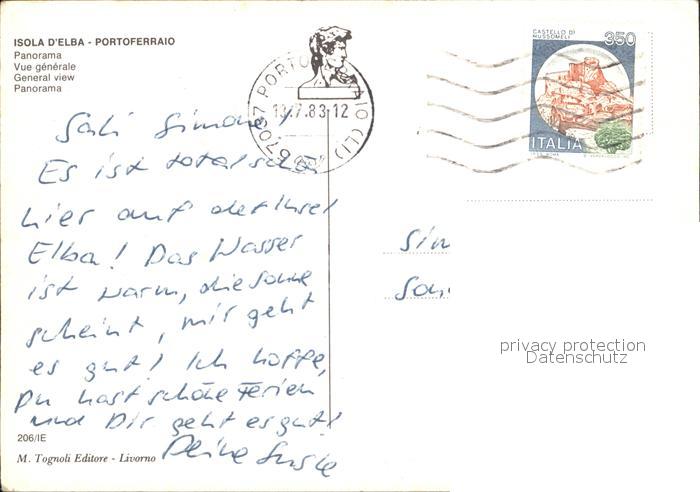 ISOLA D'ELBA - PORTOFERRAIO
Panorama
Vue générale
General view
Panorama
CASTELLO DI
MUSSOMELI
350
ITALIA
57037 PORTO AIO (LI)
19.7.83-12
Sali Simone!
Es ist total schön
hier auf der Insel
Elba! Das Wasser
ist warm, die Sonne
scheint, mir geht
es gut! Ich hoffe,
Du hast schöne Ferien
und Dir geht es gut!
Deine
Sim
privacy protection
Datenschutz
206/IE
M. Tognoli Editore - Livorno